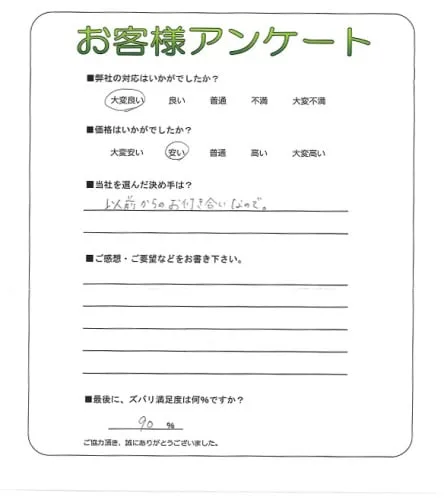 お客様アンケート
■弊社の対応はいかがでしたか？
大変良い 良い 普通 不満 大変不満
■価格はいかがでしたか？
大変安い 安い 普通 高い 大変高い
■当社を選んだ決め手は？
以前からのお付き合いなので。
■ご感想・ご要望などをお書き下さい。
■最後に、ズバリ満足度は何％ですか？
90 ％
ご協力頂き、誠にありがとうございました。